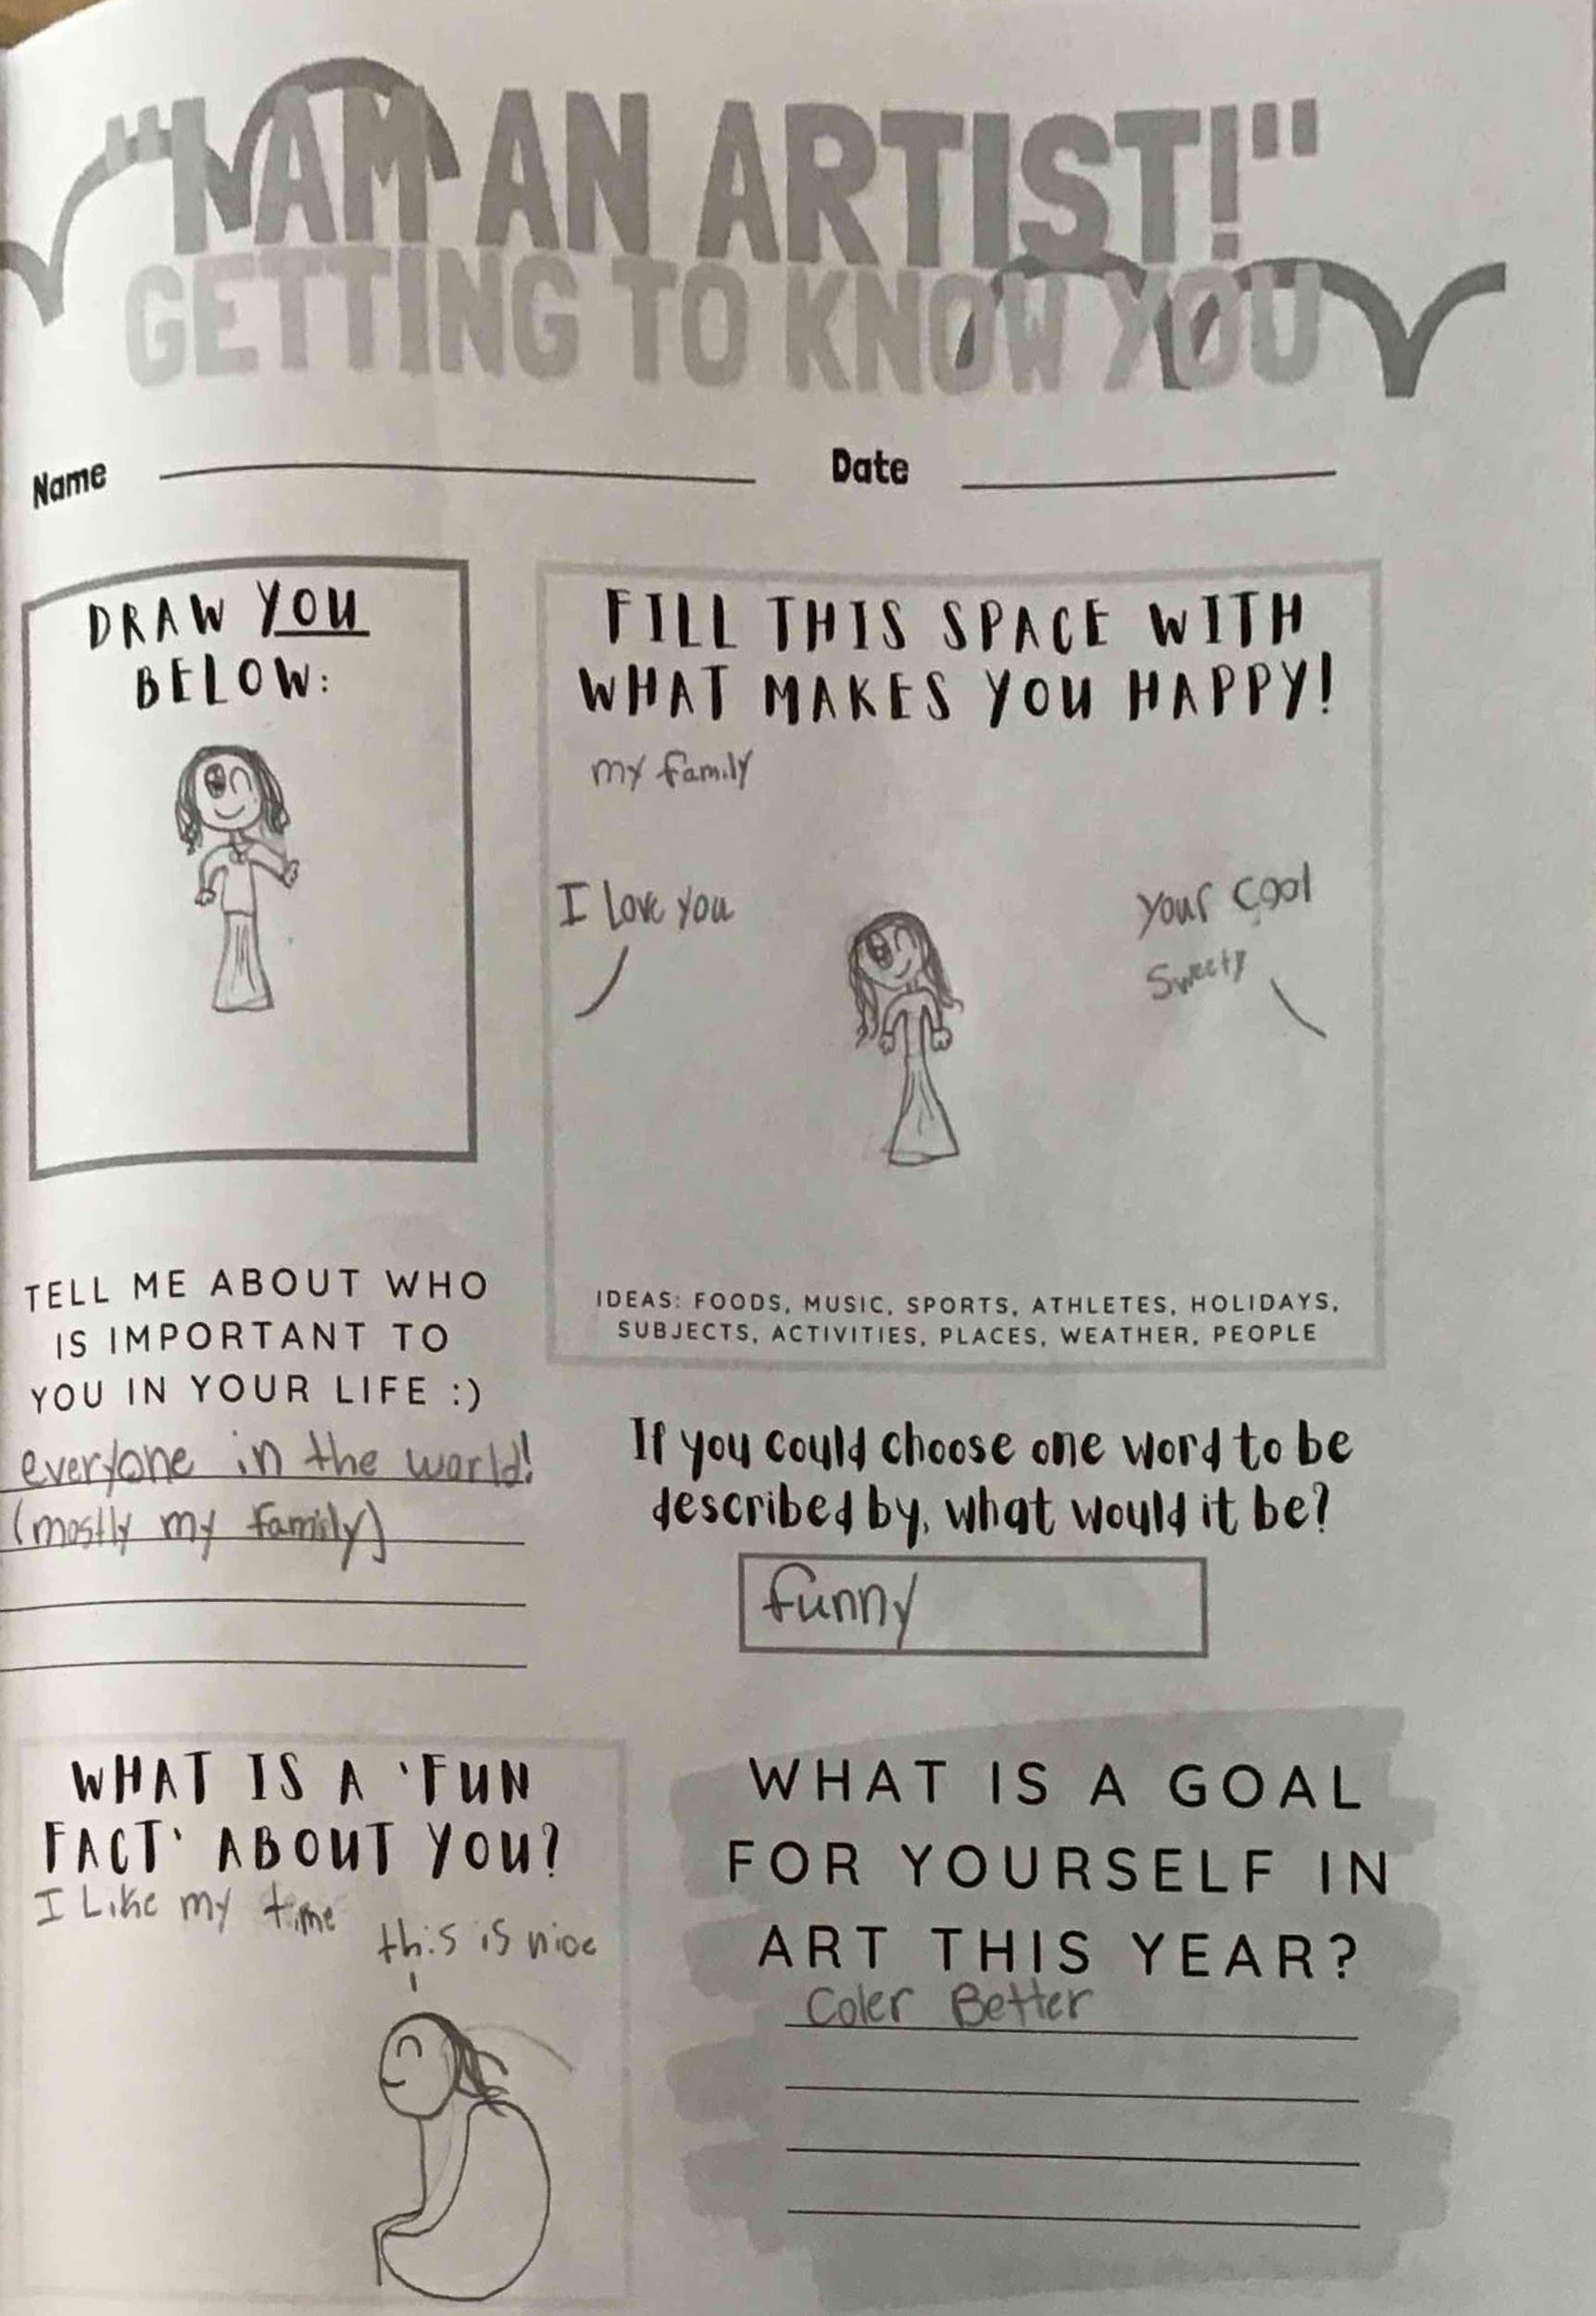 "I AM AN ARTIST!"
GETTING TO KNOW YOU
Name
Date
DRAW YOU
BELOW:
FILL THIS SPACE WITH
WHAT MAKES YOU HAPPY!
my family
I love you
your cool
Sweety
IDEAS: FOODS, MUSIC, SPORTS, ATHLETES, HOLIDAYS,
SUBJECTS, ACTIVITIES, PLACES, WEATHER, PEOPLE
TELL ME ABOUT WHO
IS IMPORTANT TO
YOU IN YOUR LIFE :)
everyone in the world!
(mostly my family)
If you could choose one word to be
described by, what would it be?
funny
WHAT IS A 'FUN
FACT' ABOUT YOU?
I Like my time
this is nice
WHAT IS A GOAL
FOR YOURSELF IN
ART THIS YEAR?
Coler Better